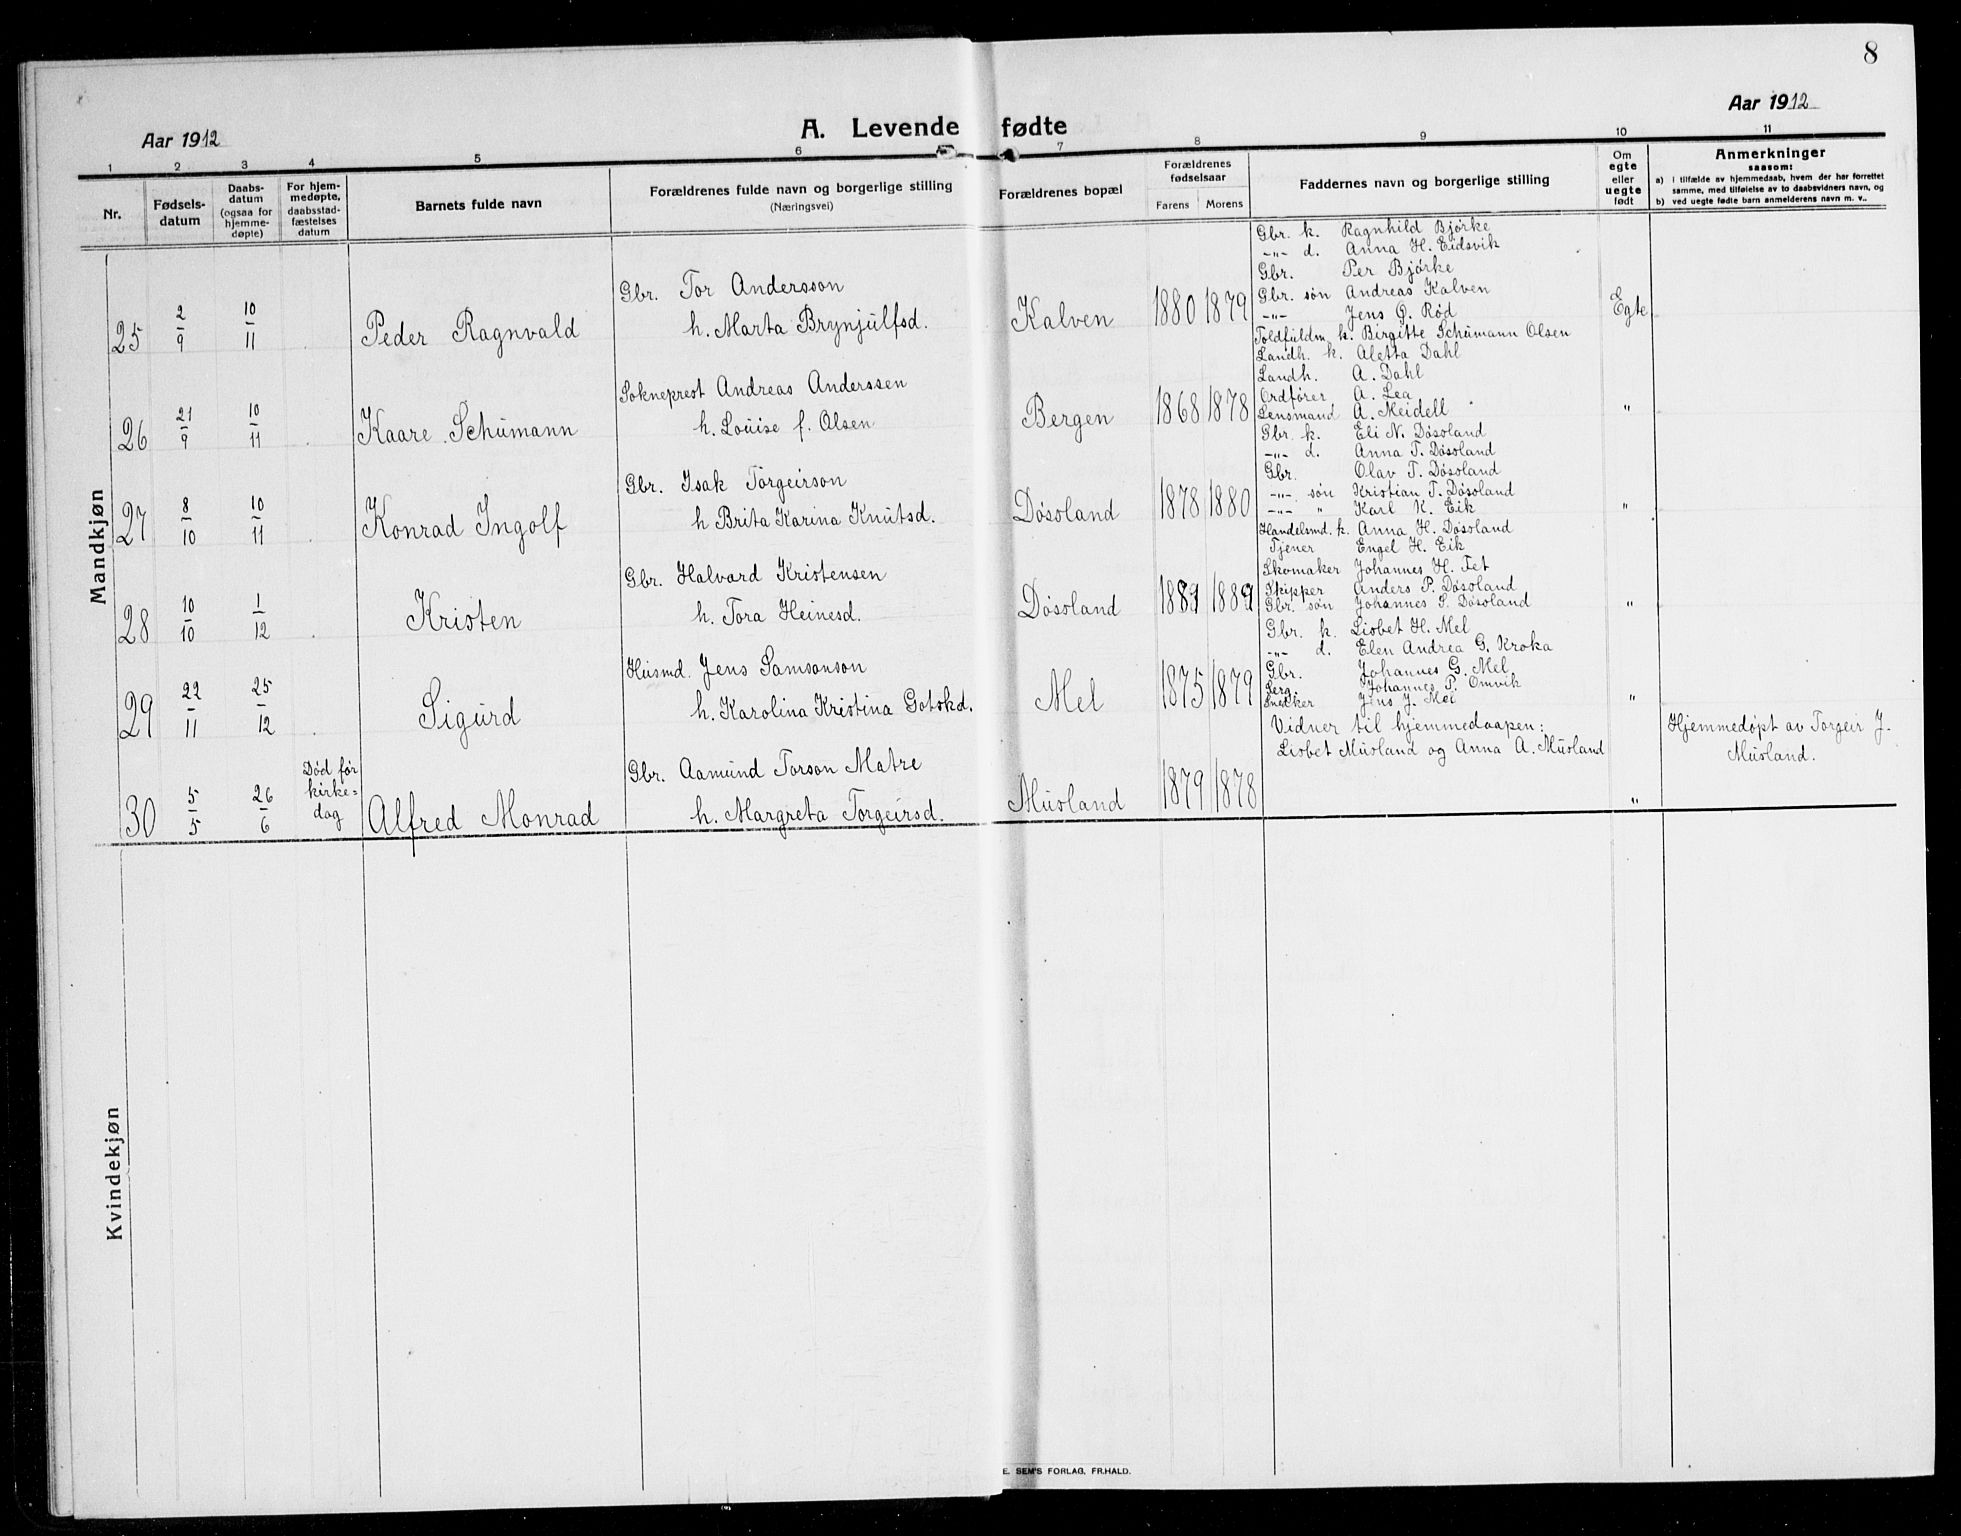 8
Aar 1912
A. Levende fødte
Aar 1912
1 2 3 4 5 6 7 8 9 10 11
Nr.
Fødsels-
datum
Daabs-
datum
(ogsaa for
hjemme-
døpte)
For hjem-
medøpte,
daabsstad-
fæstelses
datum
Barnets fulde navn
Forældrenes fulde navn og borgerlige stilling
(Næringsvei)
Forældrenes bopæl
Forældrenes
fødselsaar
Farens Morens
Faddernes navn og borgerlige stilling
Om
egte
eller
uegte
født
Anmerkninger
saasom:
a) i tilfælde av hjemmedaab, hvem der har forrettet
samme, med tilføielse av to daabsvidners navn, og
b) ved uegte fødte barn anmelderens navn m. v..
Mandkjøn
25 2/9 10/11 Peder Ragnvald
Gbr. Tor Andersson
h. Marta Brynjulfsd.
Kalven 1880 1879
Gbr. k. Ragnhild Bjørke
-"- d. Anna H. Eidsvik
Gbr. Per Bjørke
Gbr. søn Andreas Kalven
-"- Jens G. Rød
Egte
26 21/9 10/11 Kaare Schumann
Sokneprest Andreas Anderssen
h. Louise f. Olsen
Bergen 1868 1878
Toldfuldm. k. Birgitte Schumann Olsen
Landh. k. Aletta Dahl
Landh. A. Dahl
Ordfører A. Lea
Lensmand A. Meidell
"
27 8/10 10/11 Konrad Ingolf
Gbr. Isak Torgeirson
h Brita Karina Knutsd.
Døsoland 1878 1880
Gbr. k. Eli N. Døsoland
-"- d. Anna T. Døsoland
Gbr. Olav T. Døsoland
-"- søn Kristian T. Døsoland
-"- " Karl K. Eik
"
28 10/10 1/12 Kristen
Gbr. Halvard Kristensen
h. Tora Heinesd.
Døsoland 1889
Handelsmd. k. Anna H. Døsoland
Tjener Engel H. Eik
Skomaker Johannes H. Fet
Skipper Anders P. Døsoland
Gbr. søn Johannes S. Døsoland
"
29 22/11 25/12 Sigurd
Husmd. Jens Samsonson
h. Karolina Kristina Gotskd.
Mel 1875 1879
Gbr. k. Lisbet H. Mel
-"- d. Elen Andrea G. Kroka
Gbr. Johannes G. Mel
Johannes P. Omvik
Snedker Jens J. Mel
"
30 5/5 26/6
Død før
kirke=
dag
Alfred Monrad
Gbr. Aamund Torson Matre
h. Margreta Torgeirsd.
Musland 1879 1878
Vidner til hjemmedaapen:
Lisbet Musland og Anna A. Musland
"
Hjemmedøpt av Torgeir J.
Musland.
Kvindekjøn
E. SEM'S FORLAG, FR.HALD.